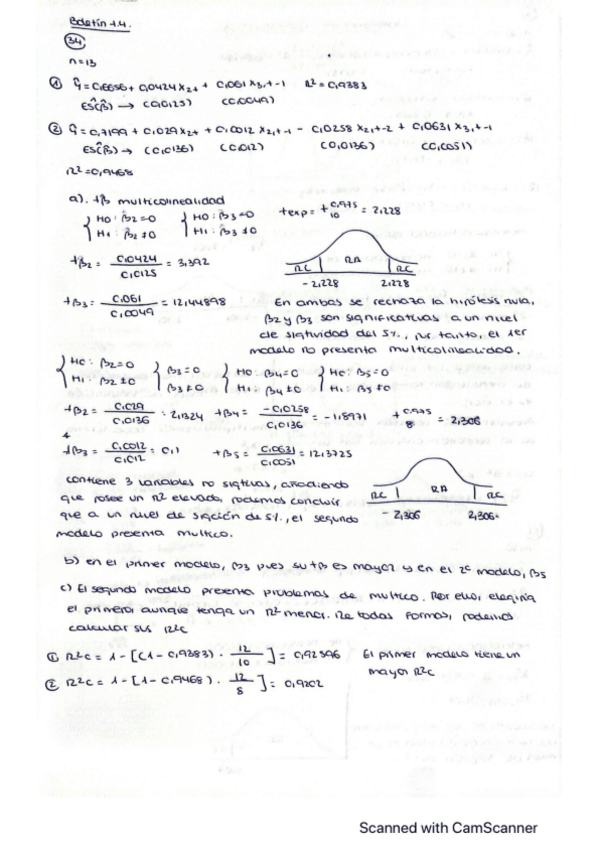 Boletín 1.4.
34
n=13
① Ŷ = 0,6656 + 0,0424 X2t + 0,061 X3,t-1 R²=0,9383
ES(β̂) → (0,0125) (0,0049)
② Ŷ = 0,7199 + 0,029 X2t + 0,0012 X2,t-1 - 0,0258 X2,t-2 + 0,0631 X3,t-1
ES(β̂) → (0,0136) (0,012) (0,0136) (0,0051)
R²=0,9468
a). tβ multicolinealidad
{ H0: β2=0 { H0: β3=0 texp = t 0,975 10 = 2,228
H1: β2≠0 H1: β3≠0
tβ2 = 0,0424 / 0,0125 = 3,392
RC RA RC
-2,228 2,228
tβ3 = 0,061 / 0,0049 = 12,44898
En ambas se rechaza la hipótesis nula,
β2 y β3 son significativas a un nivel
de sigtividad del 5%, por tanto, el 1er
modelo no presenta multicolinealidad.
{ H0: β2=0 { β3=0 { H0: β4=0 { H0: β5=0
H1: β2≠0 β3≠0 H1: β4≠0 H1: β5≠0
tβ2 = 0,029 / 0,0136 = 2,1324 tβ4 = -0,0258 / 0,0136 = -1,8971 t 0,975 8 = 2,306
tβ3 = 0,0012 / 0,012 = 0,1 tβ5 = 0,0631 / 0,0051 = 12,3725
contiene 3 variables no sigtivas, añadiendo
que posee un R² elevado, podemos concluir
que a un nivel de sigción de 5%, el segundo
modelo presenta multico.
RC RA RC
-2,306 2,306
b) en el primer modelo, β3 pues su tβ es mayor y en el 2º modelo, β5
c) El segundo modelo presenta problemas de multico. Por ello, elegiría
el primero aunque tenga un R² menor. De todas formas, podemos
calcular sus R²c
① R²c = 1 - [(1 - 0,9383) · 12/10] = 0,92596 El primer modelo tiene un
mayor R²c
② R²c = 1 - [1 - 0,9468) · 12/8] = 0,9202
Scanned with CamScanner